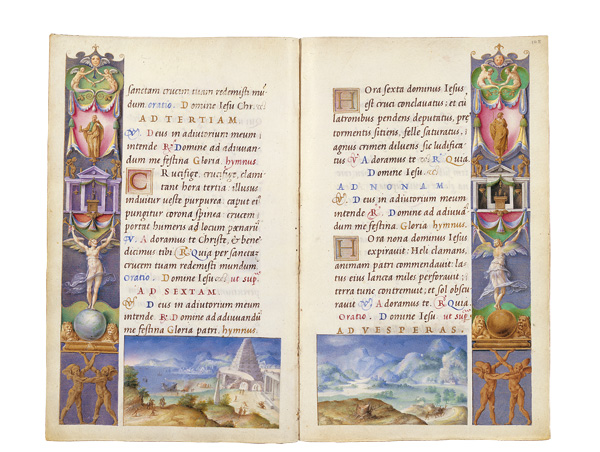 sanctam crucem tuam redemisti mū
dum oratio. Domine Iesu Chr
AD TERTIAM
V. Deus in adiutorium meum
intende R. Domine ad adiuuan
dum me festina Gloria. hymnus.
CRucifige, crucifige, clami
tant hora tertia: illusus
induitur ueste purpurea: caput ei
pungitur corona spinea: crucem
portat humeris ad locum pœnarū
V. Adoramus te Christe, & bene
dicimus tibi R. Quia per sanctam
crucem tuam redemisti mundum
Oratio. Domine Iesu ut sup.
AD SEXTAM
V. Deus in adiutorium meum
intende R. Domine ad adiuuandū
me festina Gloria patri. hymnus.
HOra sexta dominus Iesus
est cruci conclauatus: et cū
latronibus pendens deputatus, præ
tormentis sitiens, felle saturatus,
agnus crimen diluens sic ludifica
tus V. Adoramus te R. Quia.
Domine Iesu.
AD NONAM.
V. Deus in adiutorium meum
intende R. Domine ad adiuuā
dum me festina Gloria hymnus
HOra nona dominus Iesus
expirauit: Heli clamans,
animam patri commendauit: la
tus eius lancea miles perforauit,
terra tunc contremuit, et sol obscu
rauit V. Adoramus te R. Quia
Oratio. Domine Iesu ut sup
AD VESPERAS.